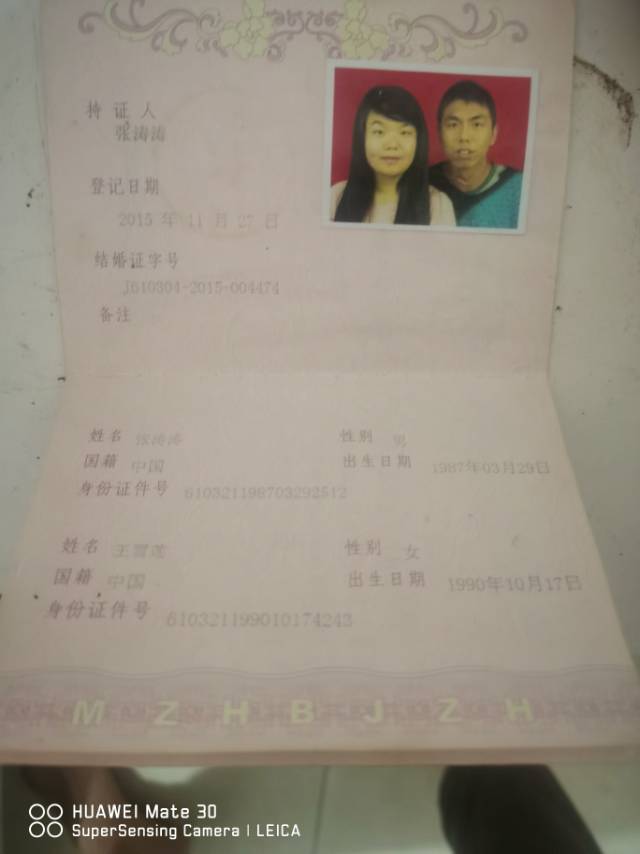 持 证 人
张涛涛
登记日期
2015 年 11 月 27 日
结婚证字号
J610304-2015-004474
备注
姓名 张涛涛 性别 男
国籍 中国 出生日期 1987年03月29日
身份证件号 610321198703292512
姓名 性别 女
国籍 中国 出生日期 1990年10月17日
身份证件号 610321199010174243
MZHBJZH
HUAWEI Mate 30
SuperSensing Camera | LEICA